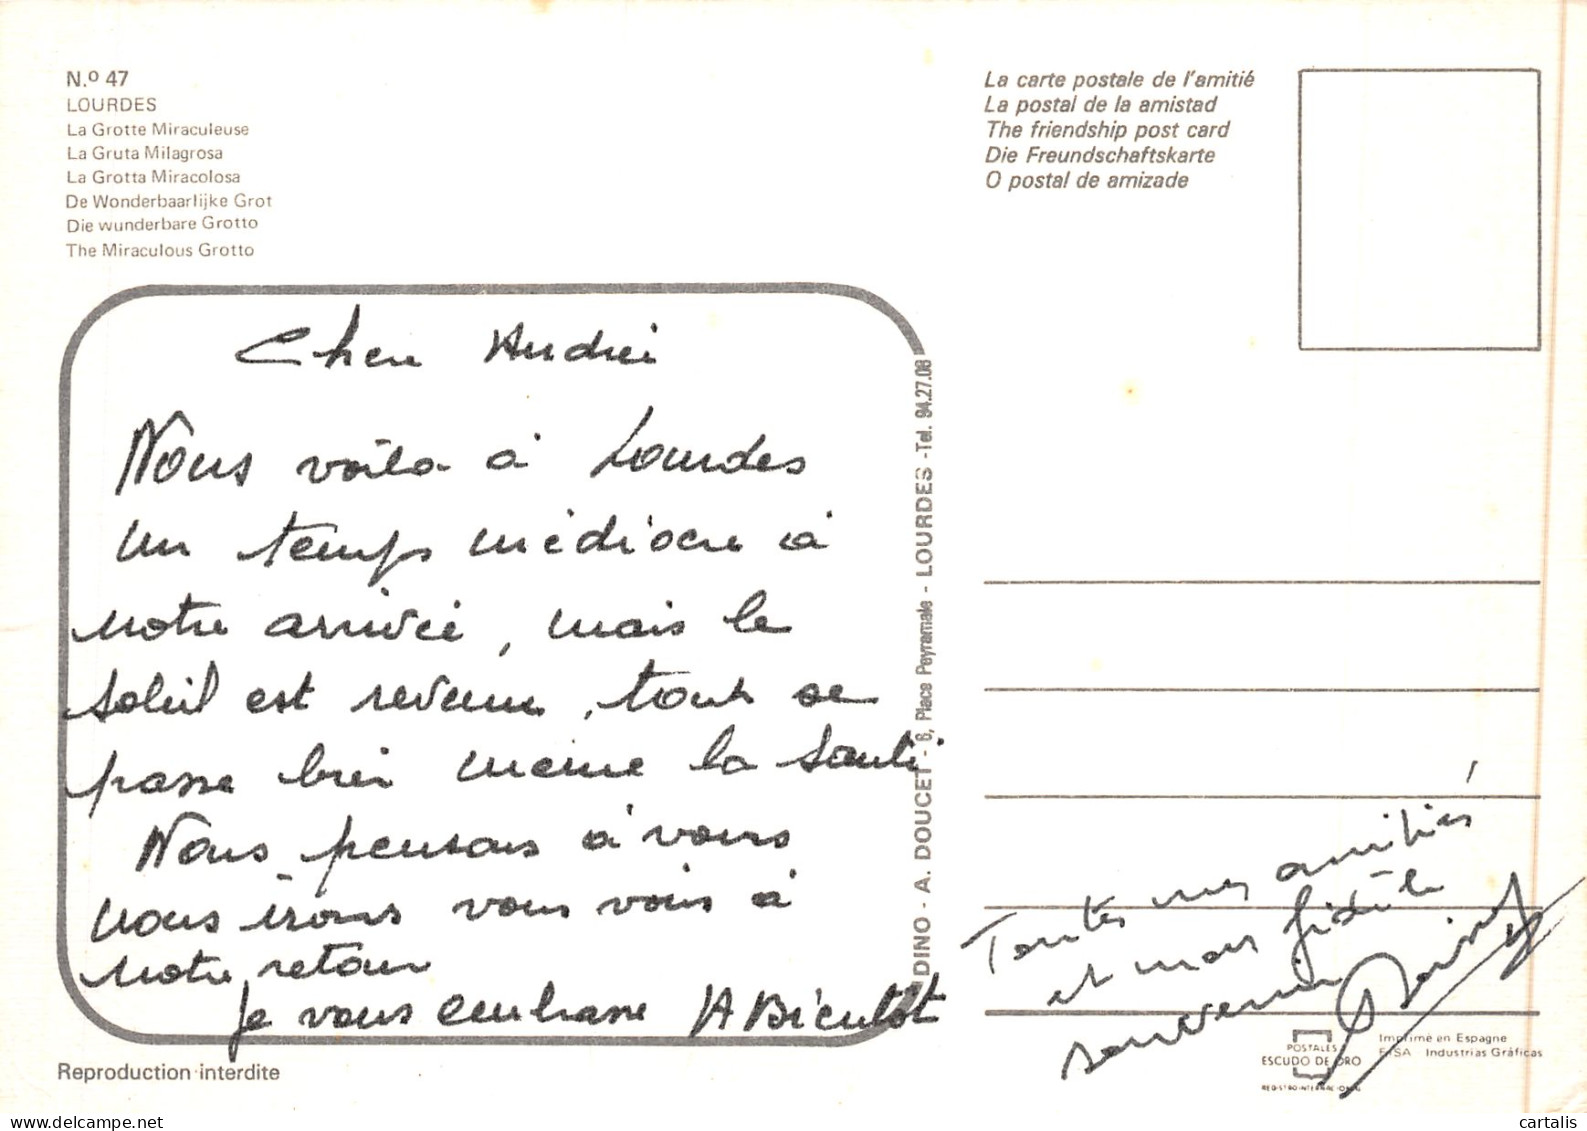 N.º 47
LOURDES
La Grotte Miraculeuse
La Gruta Milagrosa
La Grotta Miracolosa
De Wonderbaarlijke Grot
Die wunderbare Grotto
The Miraculous Grotto
La carte postale de l'amitié
La postal de la amistad
The friendship post card
Die Freundschaftskarte
O postal de amizade
Chere Andrée
Nous voila à Lourdes
un temps médiocre à
notre arrivée, mais le
soleil est revenu, tout se
passe bien meme la santé
Nous pensons à vous
nous irons vous voir à
notre retour
Je vous embrasse A
DINO - A. DOUCET - 6, Place Peyramale - LOURDES - Tel. 94.27.08
Toutes mes amitiés
et mon fidèle
souvenir
POSTALES
ESCUDO DE ORO
REGISTRO INTERNACIONAL
Imprimé en Espagne
FISA Industrias Gráficas
Reproduction interdite
cartalis